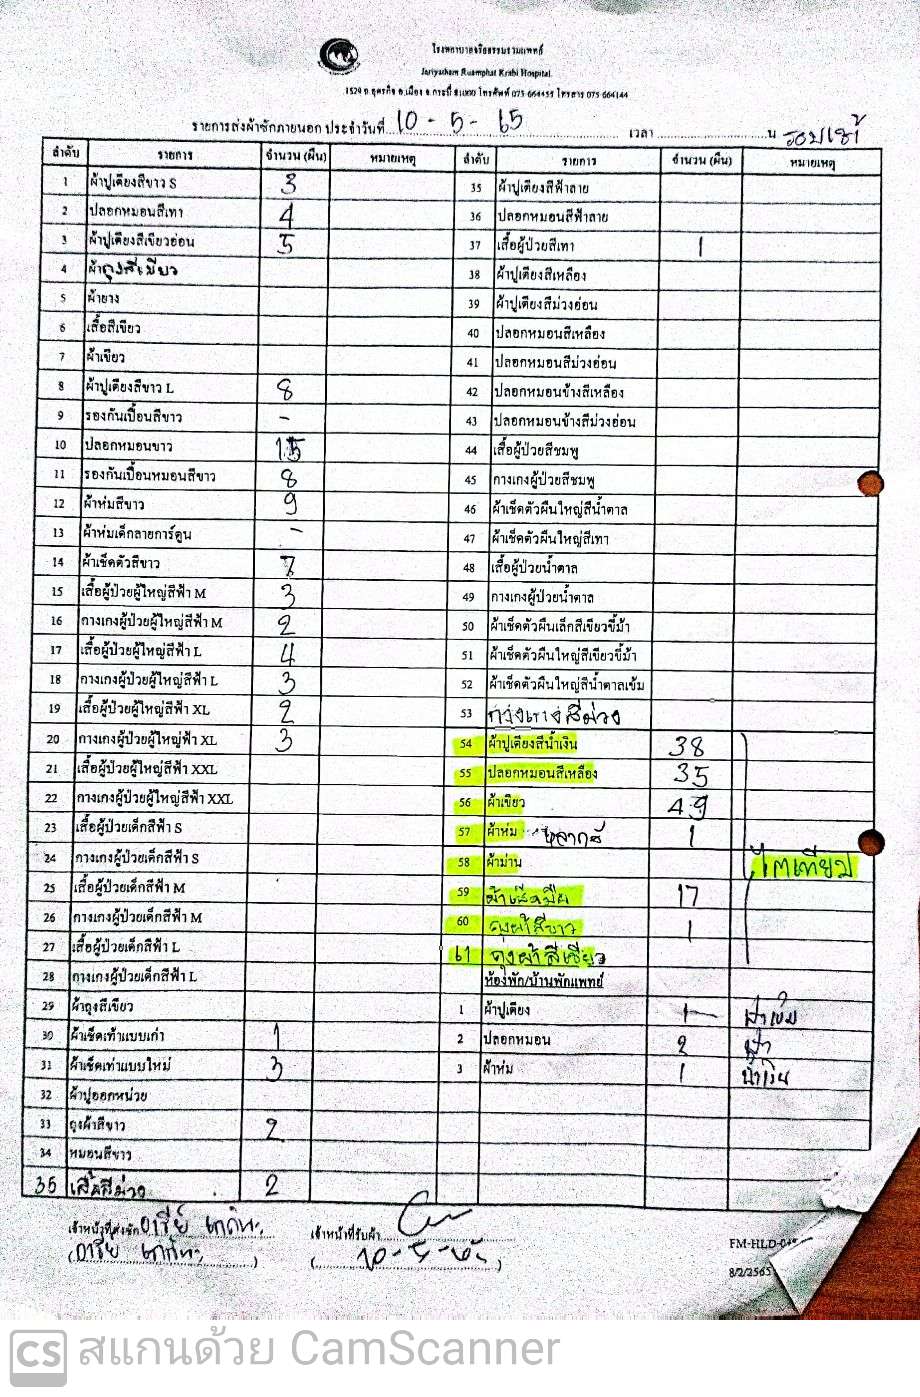 โรงพยาบาลจริยธรรมรวมแพทย์
Jariyatham Ruamphat Krabi Hospital.
1529 ถ.อุตรกิจ อ.เมือง จ.กระบี่ 81000 โทรศัพท์ 075-664455 โทรสาร 075-664144
รายการส่งผ้าซักภายนอก ประจำวันที่ 10 - 5 - 65 เวลา น รอบเช้า
ลำดับ รายการ จำนวน (ผืน) หมายเหตุ ลำดับ รายการ จำนวน (ผืน) หมายเหตุ
1 ผ้าปูเตียงสีขาว S 3
2 ปลอกหมอนสีเทา 4
3 ผ้าปูเตียงสีเขียวอ่อน 5
4 ผ้าถุงสีเขียว
5 ผ้ายาง
6 เสื้อสีเขียว
7 ผ้าเขียว
8 ผ้าปูเตียงสีขาว L 8
9 รองกันเปื้อนสีขาว -
10 ปลอกหมอนขาว 15
11 รองกันเปื้อนหมอนสีขาว 8
12 ผ้าห่มสีขาว 9
13 ผ้าห่มเด็กลายการ์ตูน -
14 ผ้าเช็ดตัวสีขาว 7
15 เสื้อผู้ป่วยผู้ใหญ่สีฟ้า M 3
16 กางเกงผู้ป่วยผู้ใหญ่สีฟ้า M 2
17 เสื้อผู้ป่วยผู้ใหญ่สีฟ้า L 4
18 กางเกงผู้ป่วยผู้ใหญ่สีฟ้า L 3
19 เสื้อผู้ป่วยผู้ใหญ่สีฟ้า XL 2
20 กางเกงผู้ป่วยผู้ใหญ่ฟ้า XL 3
21 เสื้อผู้ป่วยผู้ใหญ่สีฟ้า XXL
22 กางเกงผู้ป่วยผู้ใหญ่สีฟ้า XXL
23 เสื้อผู้ป่วยเด็กสีฟ้า S
24 กางเกงผู้ป่วยเด็กสีฟ้า S
25 เสื้อผู้ป่วยเด็กสีฟ้า M
26 กางเกงผู้ป่วยเด็กสีฟ้า M
27 เสื้อผู้ป่วยเด็กสีฟ้า L
28 กางเกงผู้ป่วยเด็กสีฟ้า L
29 ผ้าถุงสีเขียว
30 ผ้าเช็ดเท้าแบบเก่า 1
31 ผ้าเช็ดเท่าแบบใหม่ 3
32 ผ้าปูออกหน่วย
33 ถุงผ้าสีขาว 2
34 หมอนสีขาว
35 เสื้อสีม่วง 2
35 ผ้าปูเตียงสีฟ้าลาย
36 ปลอกหมอนสีฟ้าลาย
37 เสื้อผู้ป่วยสีเทา 1
38 ผ้าปูเตียงสีเหลือง
39 ผ้าปูเตียงสีม่วงอ่อน
40 ปลอกหมอนสีเหลือง
41 ปลอกหมอนสีม่วงอ่อน
42 ปลอกหมอนข้างสีเหลือง
43 ปลอกหมอนข้างสีม่วงอ่อน
44 เสื้อผู้ป่วยสีชมพู
45 กางเกงผู้ป่วยสีชมพู
46 ผ้าเช็ดตัวผืนใหญ่สีน้ำตาล
47 ผ้าเช็ดตัวผืนใหญ่สีเทา
48 เสื้อผู้ป่วยน้ำตาล
49 กางเกงผู้ป่วยน้ำตาล
50 ผ้าเช็ดตัวผืนเล็กสีเขียวขี้ม้า
51 ผ้าเช็ดตัวผืนใหญ่สีเขียวขี้ม้า
52 ผ้าเช็ดตัวผืนใหญ่สีน้ำตาลเข้ม
53 กางเกงสีม่วง
54 ผ้าปูเตียงสีน้ำเงิน 38
55 ปลอกหมอนสีเหลือง 35
56 ผ้าเขียว 49
57 ผ้าห่ม หลากสี 1
58 ผ้าม่าน ไตเทียม
59 ผ้าเช็ดมือ 17
60 ถุงผ้าสีขาว 1
61 ถุงผ้าสีเขียว
ห้องพัก/บ้านพักแพทย์
1 ผ้าปูเตียง 1 ฟ้าเข้ม
2 ปลอกหมอน 2 ฟ้า
3 ผ้าห่ม 1 น้ำเงิน
เจ้าหน้าที่ส่งซัก เจ้าหน้าที่รับผ้า
( ) (10-5-65)
FM-HLD-04
8/2/2565
CS สแกนด้วย CamScanner